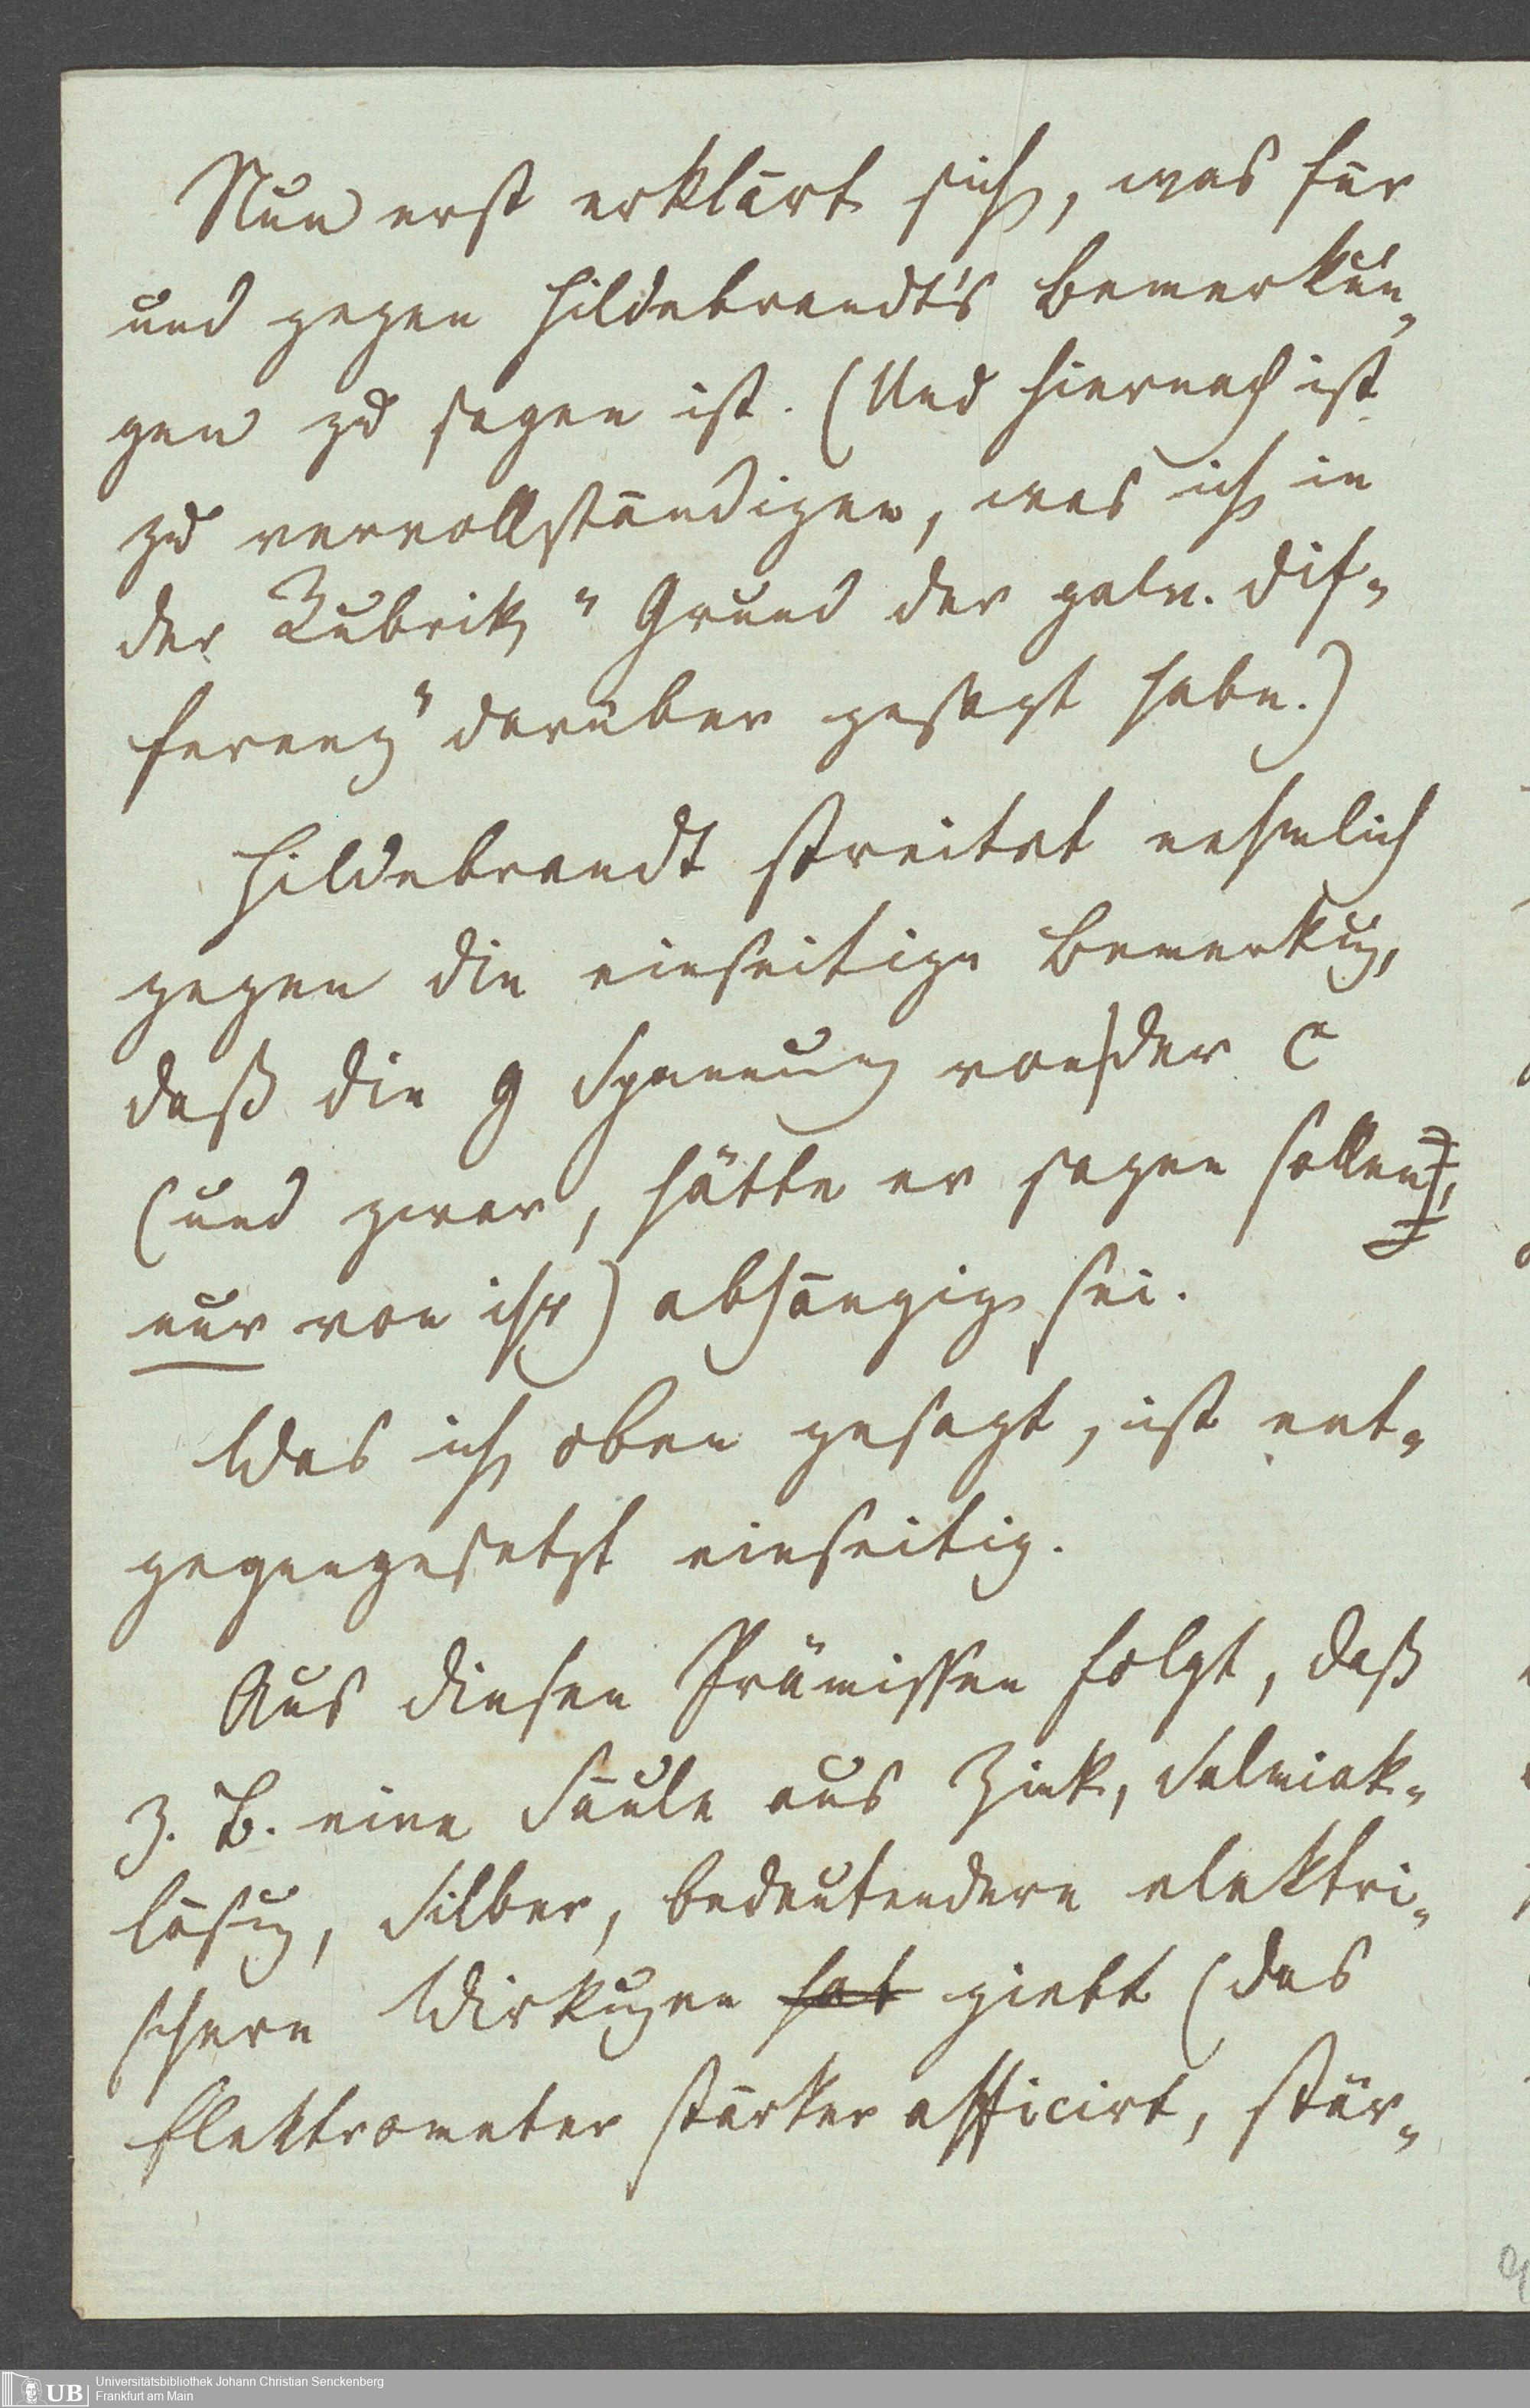 Nun erst erklärt sich, was für
und gegen Hildebrandt's Bemerkun-
gen zu sagen ist. (Und hiernach ist
zu vervollständigen, was ich in
der Rubrik "Grund der galv. Dif-
ferenz" darüber gesagt habe.)
Hildebrandt streitet nehmlich
gegen die einseitige Bemerkung,
daß die g Spannung von der C
(und zwar, hätte er sagen sollen,
nur von ihr) abhängig sei.
Was ich oben gesagt, ist ent-
gegengesetzt einseitig.
Aus diesen Prämissen folgt, daß
z. B. eine Säule aus Zink, Salmiak-
lösung, Silber, bedeutendere elektri-
schere Wirkungen hat giebt (das
Elektrometer stärker afficirt, stär-
Universitätsbibliothek Johann Christian Senckenberg
UB Frankfurt am Main